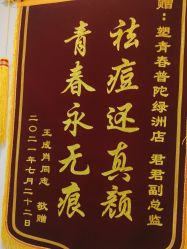 赠：塑青春普陀绿洲店 君君副总监
祛痘还真颜
青春永无痕
王成肖同志 敬赠
二〇二一年七月二十二日